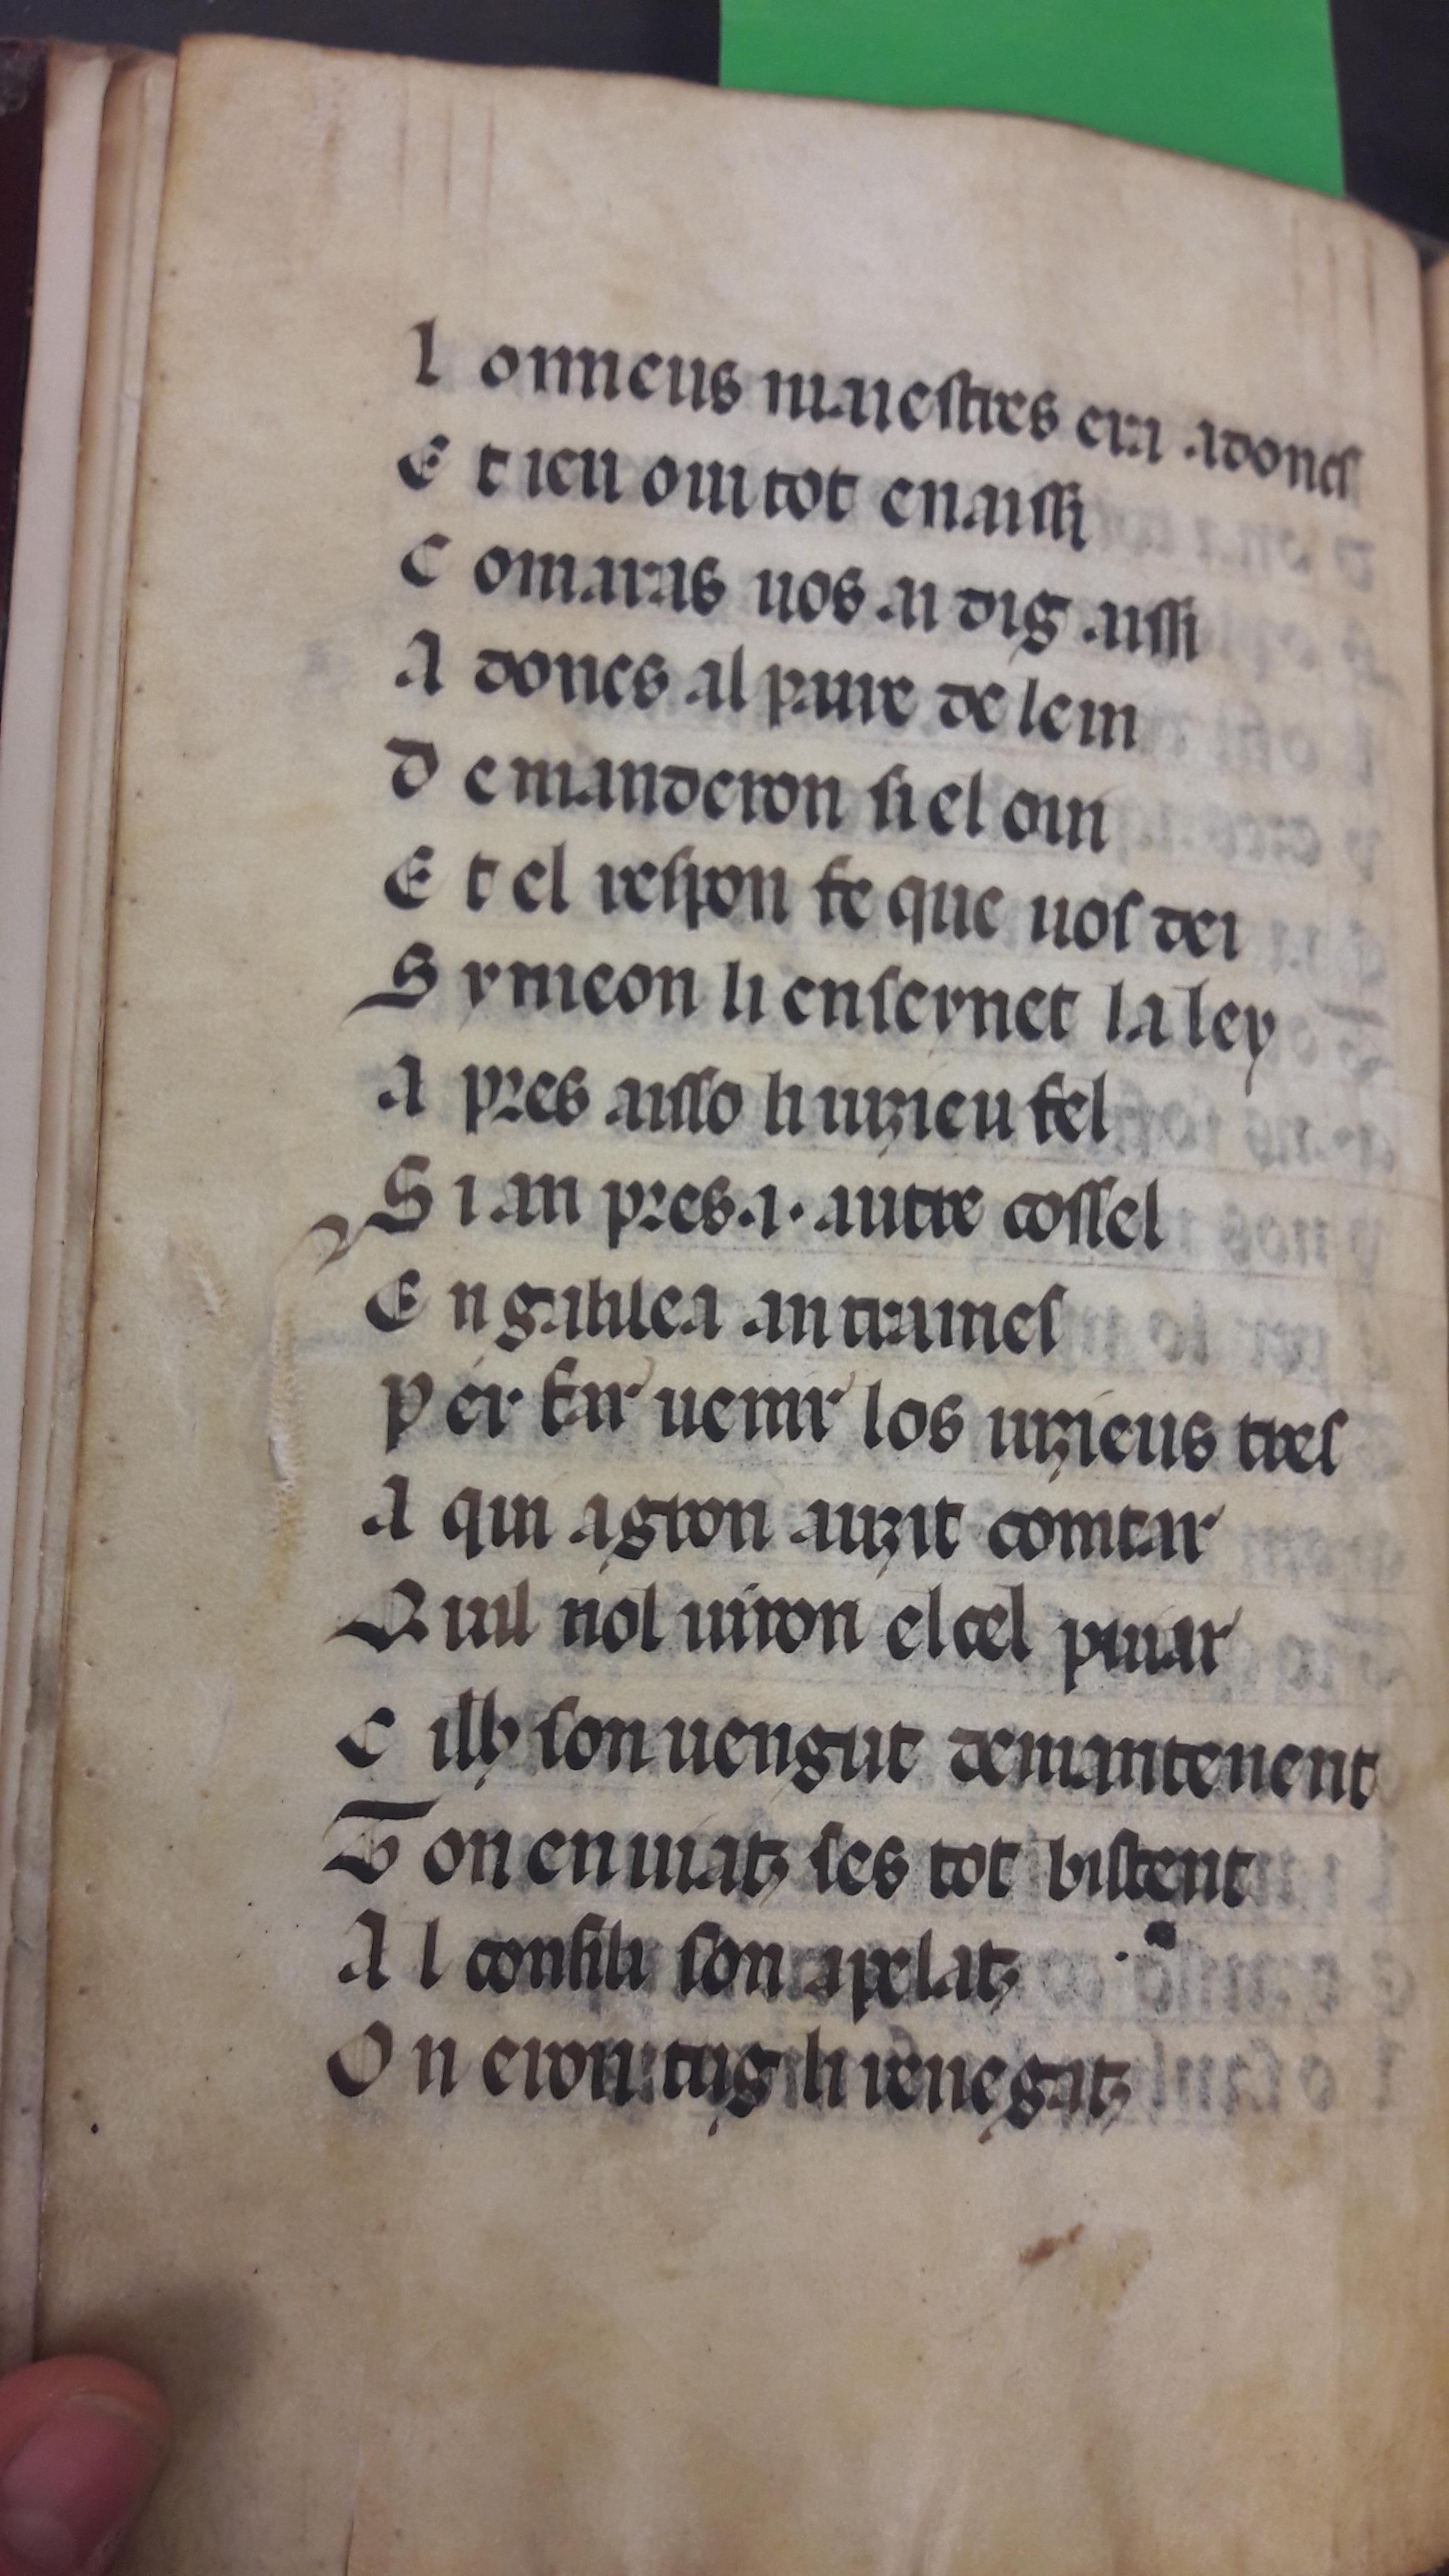 L o mieus maiestres era adoncſ
E t ieu oui tot enaiſſi
C omaras uos ai dig aiſſi
A doncs al paire de leui
D emanderon ſi el oui
E t el reſpon fe que uoſ dei
S ymeon li enſeynet la ley
A pres aiſſo li iuzieu fel
S i an pres .i. autre coſſel
E n galilea an trameſ
P er far uenir los iuzieus treſ
A qui agron auzit comtar
Q uil nol uiron el cel puiar
C ilh ſon uengut demantenent
T on enuiatz ſes tot biſtent
A l conſili ſon apelatz
O n eron tug li renegatz